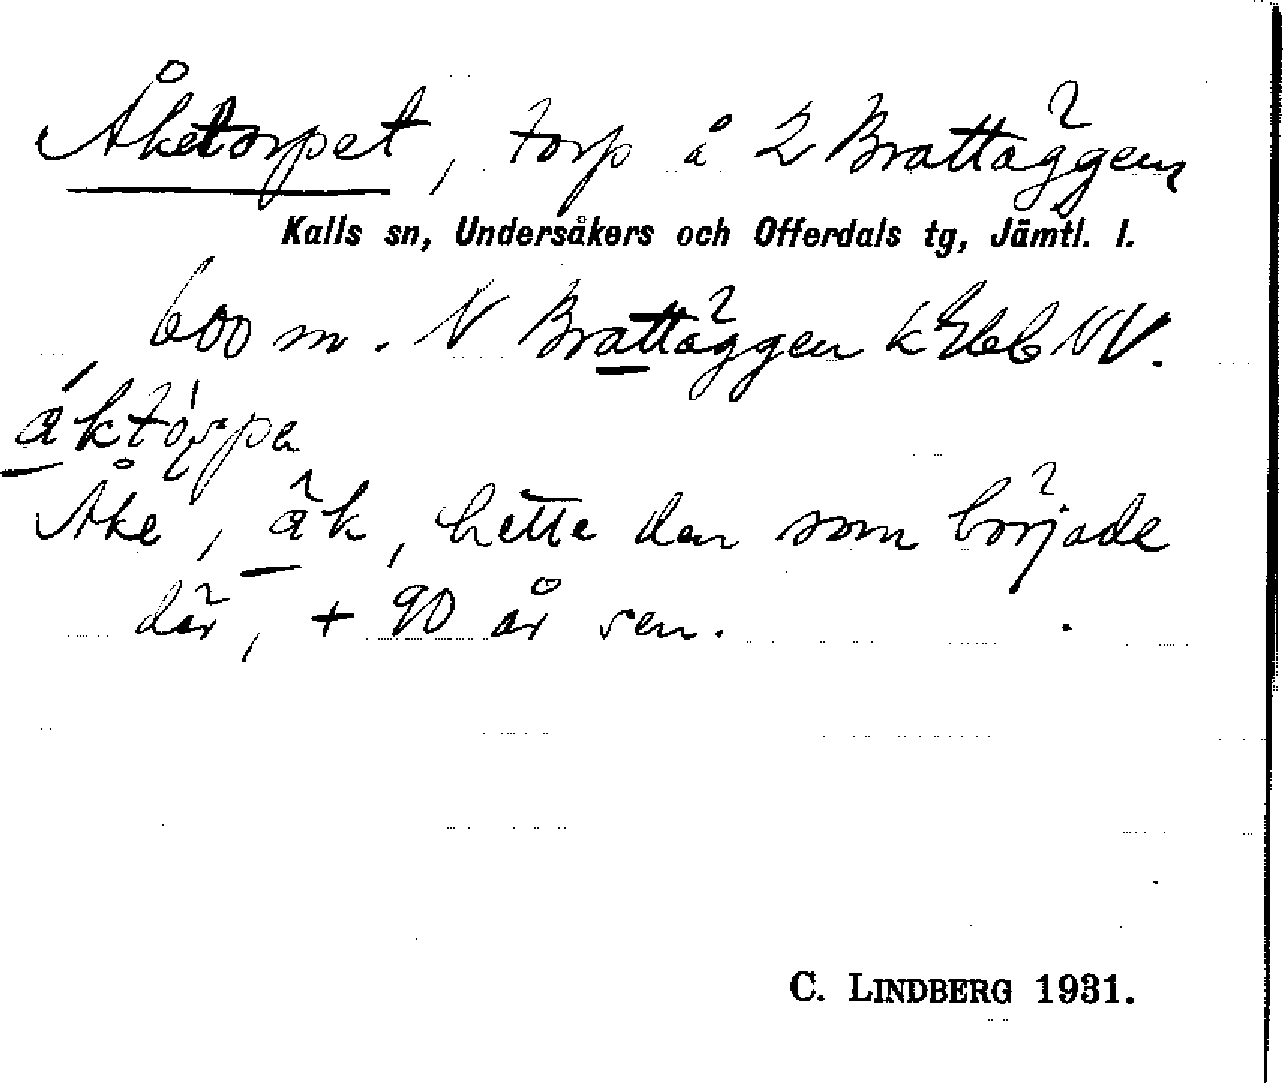 Åketorpet, torp å 2 Brattäggen
Kalls sn, Undersåkers och Offerdals tg, Jämtl. l.
600 m. N Brattäggen NV.
åktörpa
Åke, åk, hette den som började
där, + 90 år sen.
C. LINDBERG 1931.